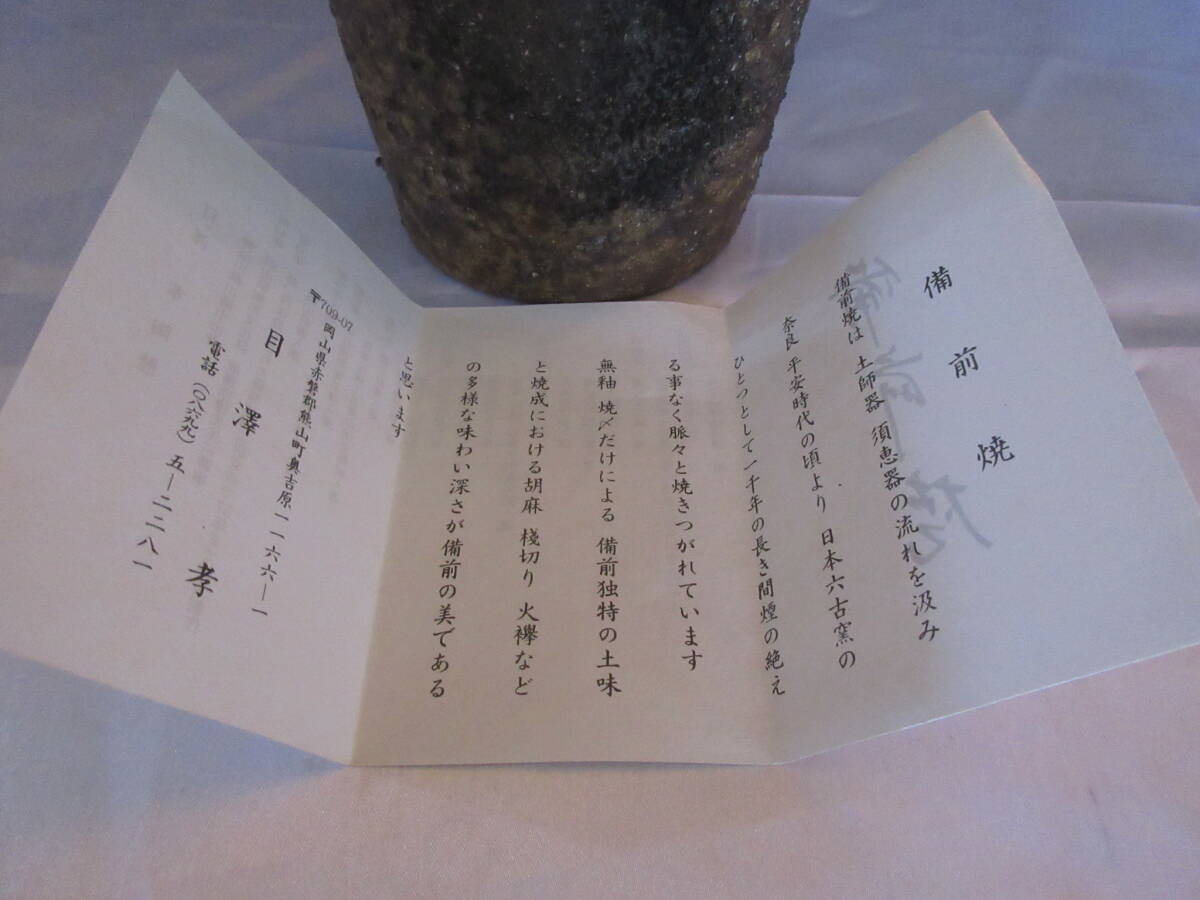 備前焼
備前焼は 土師器 須恵器の流れを汲み
奈良 平安時代の頃より 日本六古窯の
ひとつとして一千年の長き間煙の絶え
る事なく脈々と焼きつがれています
無釉 焼〆だけによる 備前独特の土味
と焼成における胡麻 棧切り 火襷など
の多様な味わい深さが備前の美である
と思います
〒709-07
岡山県赤磐郡熊山町奥吉原一一六六―一
目澤 孝
電話(〇八六九九)五―二二八一